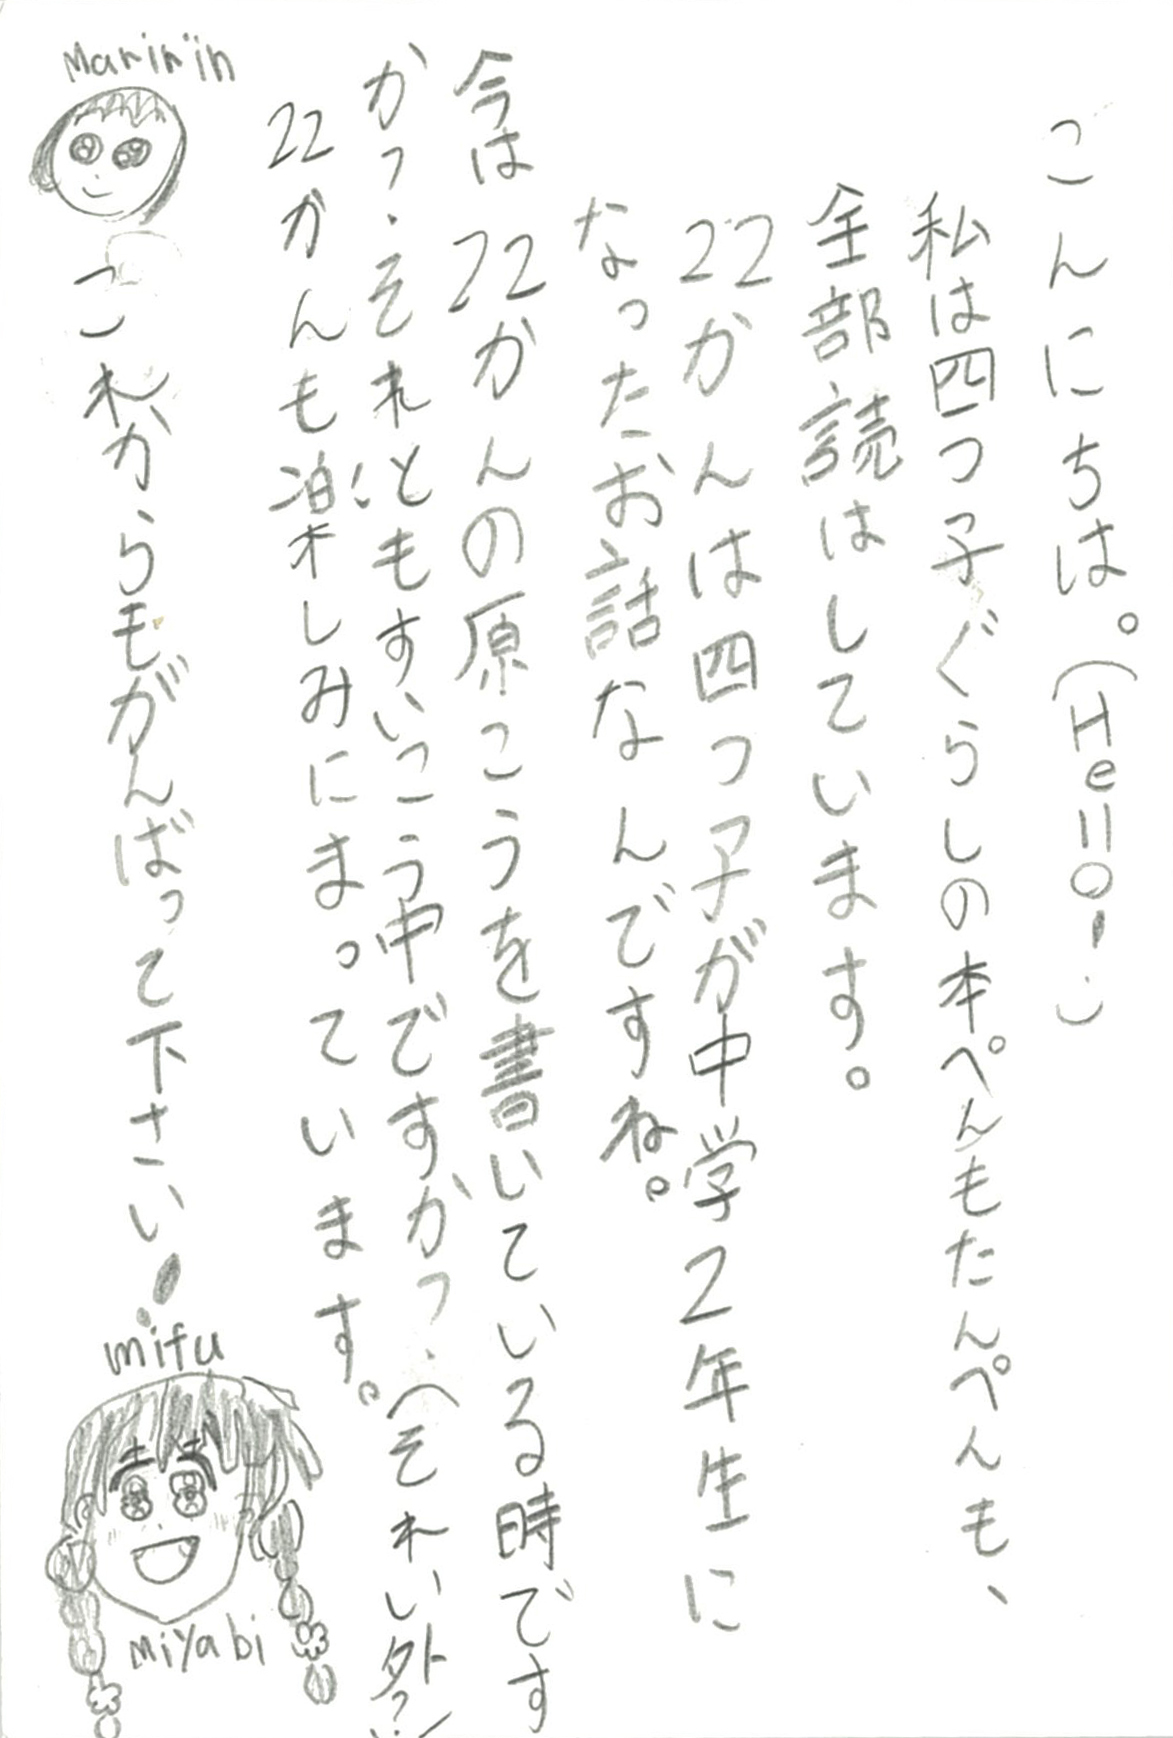 こんにちは。(Hello!)
私は四つ子ぐらしの本ぺんもたんぺんも、
全部読はしています。
22かんは四つ子が中学2年生に
なったお話なんですね。
今は22かんの原こうを書いている時です
か?それともすいこう中ですか?(それい外?)
22かんも楽しみにまっています。
これからもがんばって下さい!
Maririn
mifu
miyabi